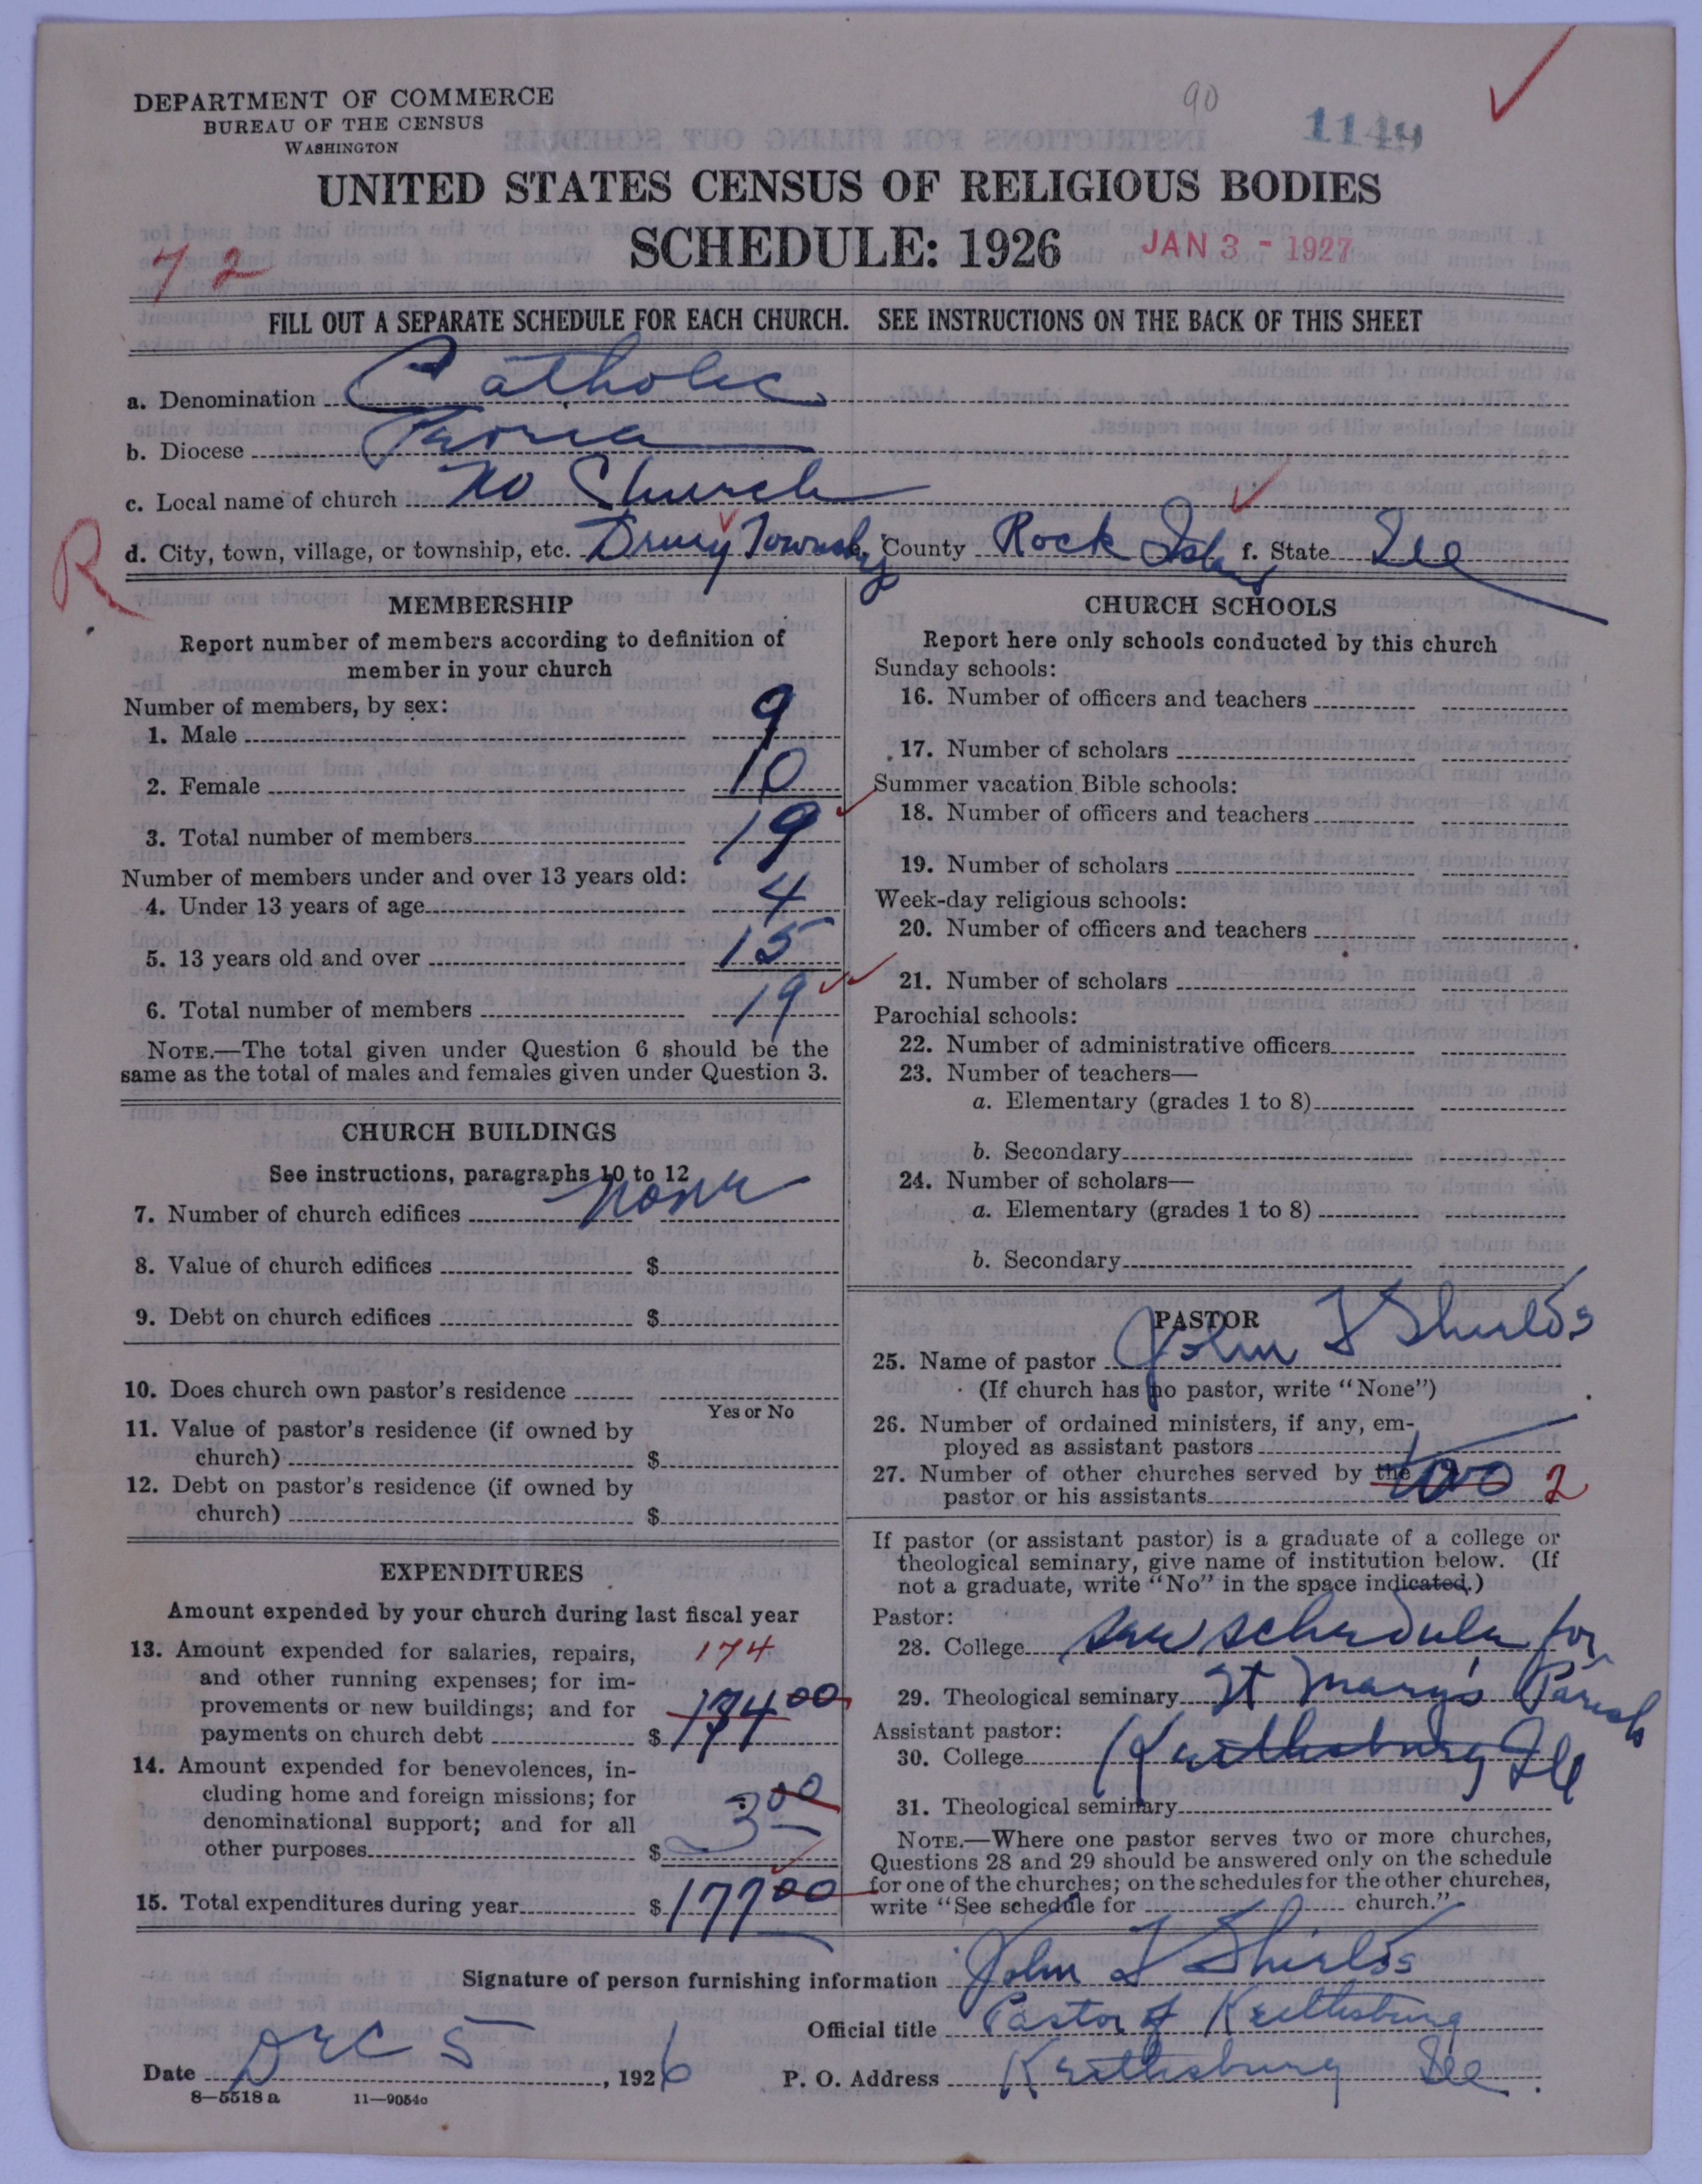 DEPARTMENT OF COMMERCE
BUREAU OF THE CENSUS
WASHINGTON
90
1144
UNITED STATES CENSUS OF RELIGIOUS BODIES
SCHEDULE: 1926
JAN 3 - 1927
72
FILL OUT A SEPARATE SCHEDULE FOR EACH CHURCH. SEE INSTRUCTIONS ON THE BACK OF THIS SHEET
a. Denomination Catholic
b. Diocese Peoria
c. Local name of church No Church
R
d. City, town, village, or township, etc. Drury Township County Rock Island f. State Ill
MEMBERSHIP
Report number of members according to definition of
member in your church
Number of members, by sex:
1. Male 9
2. Female 10
3. Total number of members 19
Number of members under and over 13 years old:
4. Under 13 years of age 4
5. 13 years old and over 15
6. Total number of members 19
NOTE.—The total given under Question 6 should be the
same as the total of males and females given under Question 3.
CHURCH BUILDINGS
See instructions, paragraphs 10 to 12
7. Number of church edifices none
8. Value of church edifices $
9. Debt on church edifices $
10. Does church own pastor's residence
Yes or No
11. Value of pastor's residence (if owned by
church) $
12. Debt on pastor's residence (if owned by
church) $
EXPENDITURES
Amount expended by your church during last fiscal year
13. Amount expended for salaries, repairs, 174
and other running expenses; for im-
provements or new buildings; and for
payments on church debt $ 174 00
14. Amount expended for benevolences, in-
cluding home and foreign missions; for
denominational support; and for all
other purposes $ 3 00
15. Total expenditures during year $ 177 00
CHURCH SCHOOLS
Report here only schools conducted by this church
Sunday schools:
16. Number of officers and teachers
17. Number of scholars
Summer vacation Bible schools:
18. Number of officers and teachers
19. Number of scholars
Week-day religious schools:
20. Number of officers and teachers
21. Number of scholars
Parochial schools:
22. Number of administrative officers
23. Number of teachers—
a. Elementary (grades 1 to 8)
b. Secondary
24. Number of scholars—
a. Elementary (grades 1 to 8)
b. Secondary
PASTOR
25. Name of pastor John Shields
(If church has no pastor, write "None")
26. Number of ordained ministers, if any, em-
ployed as assistant pastors
27. Number of other churches served by the
pastor or his assistants two 2
If pastor (or assistant pastor) is a graduate of a college or
theological seminary, give name of institution below. (If
not a graduate, write "No" in the space indicated.)
Pastor:
28. College see schedule for
29. Theological seminary St Mary's Parish
Assistant pastor:
30. College Keithsburg Ill
31. Theological seminary
NOTE.—Where one pastor serves two or more churches,
Questions 28 and 29 should be answered only on the schedule
for one of the churches; on the schedules for the other churches,
write "See schedule for church."
Signature of person furnishing information John Shields
Official title Pastor of Keithsburg
Date Dec 5, 1926
P. O. Address Keithsburg Ill.
8—5518 a 11—9054